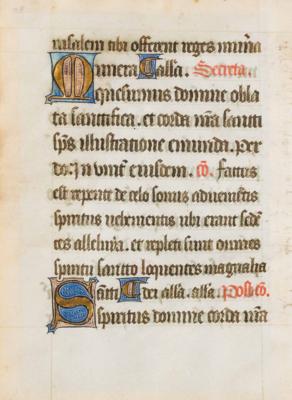 rusalem tibi offerent reges mun̄a
Munera Cassa. Secreta.
q̄uesumus domine obla
ta sanctifica. et corda nr̄a sancti
sp̄s illustratione emunda. per
do: in vnitate eiusdem. cō. Factus
est repente de celo sonus aduenientis
spiritus uehementis ubi erant seden
tes alleluya. et repleti sunt omnes
spiritu sancto loquentes magnalia
dei alla. alla. Postcō.
Sancti spiritus domine corda nr̄a